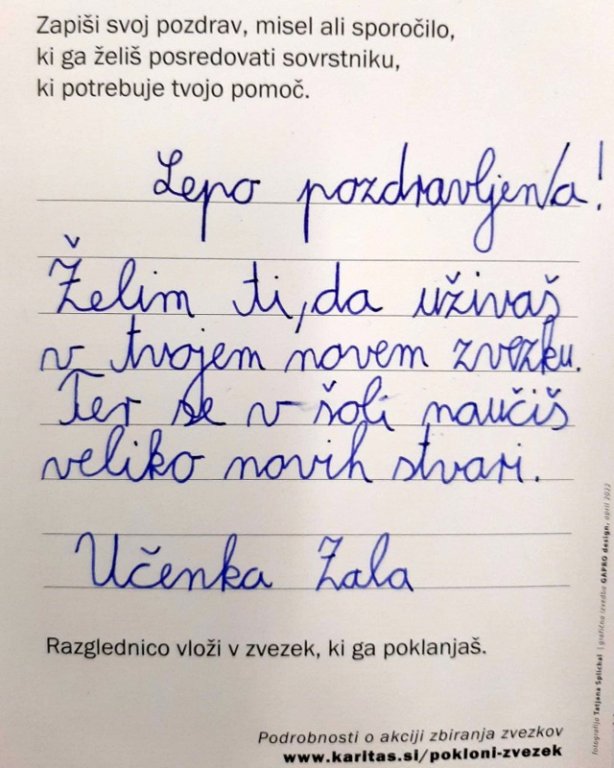 Zapiši svoj pozdrav, misel ali sporočilo,
ki ga želiš posredovati sovrstniku,
ki potrebuje tvojo pomoč.
Lepo pozdravljen/a!
Želim ti, da uživaš
v tvojem novem zvezku.
Ter se v šoli naučiš
veliko novih stvari.
Učenka Zala
Razglednico vloži v zvezek, ki ga poklanjaš.
Podrobnosti o akciji zbiranja zvezkov
www.karitas.si/pokloni-zvezek
fotografija Tatjana Splichal | grafična izvedba GAPRO design, april 2022